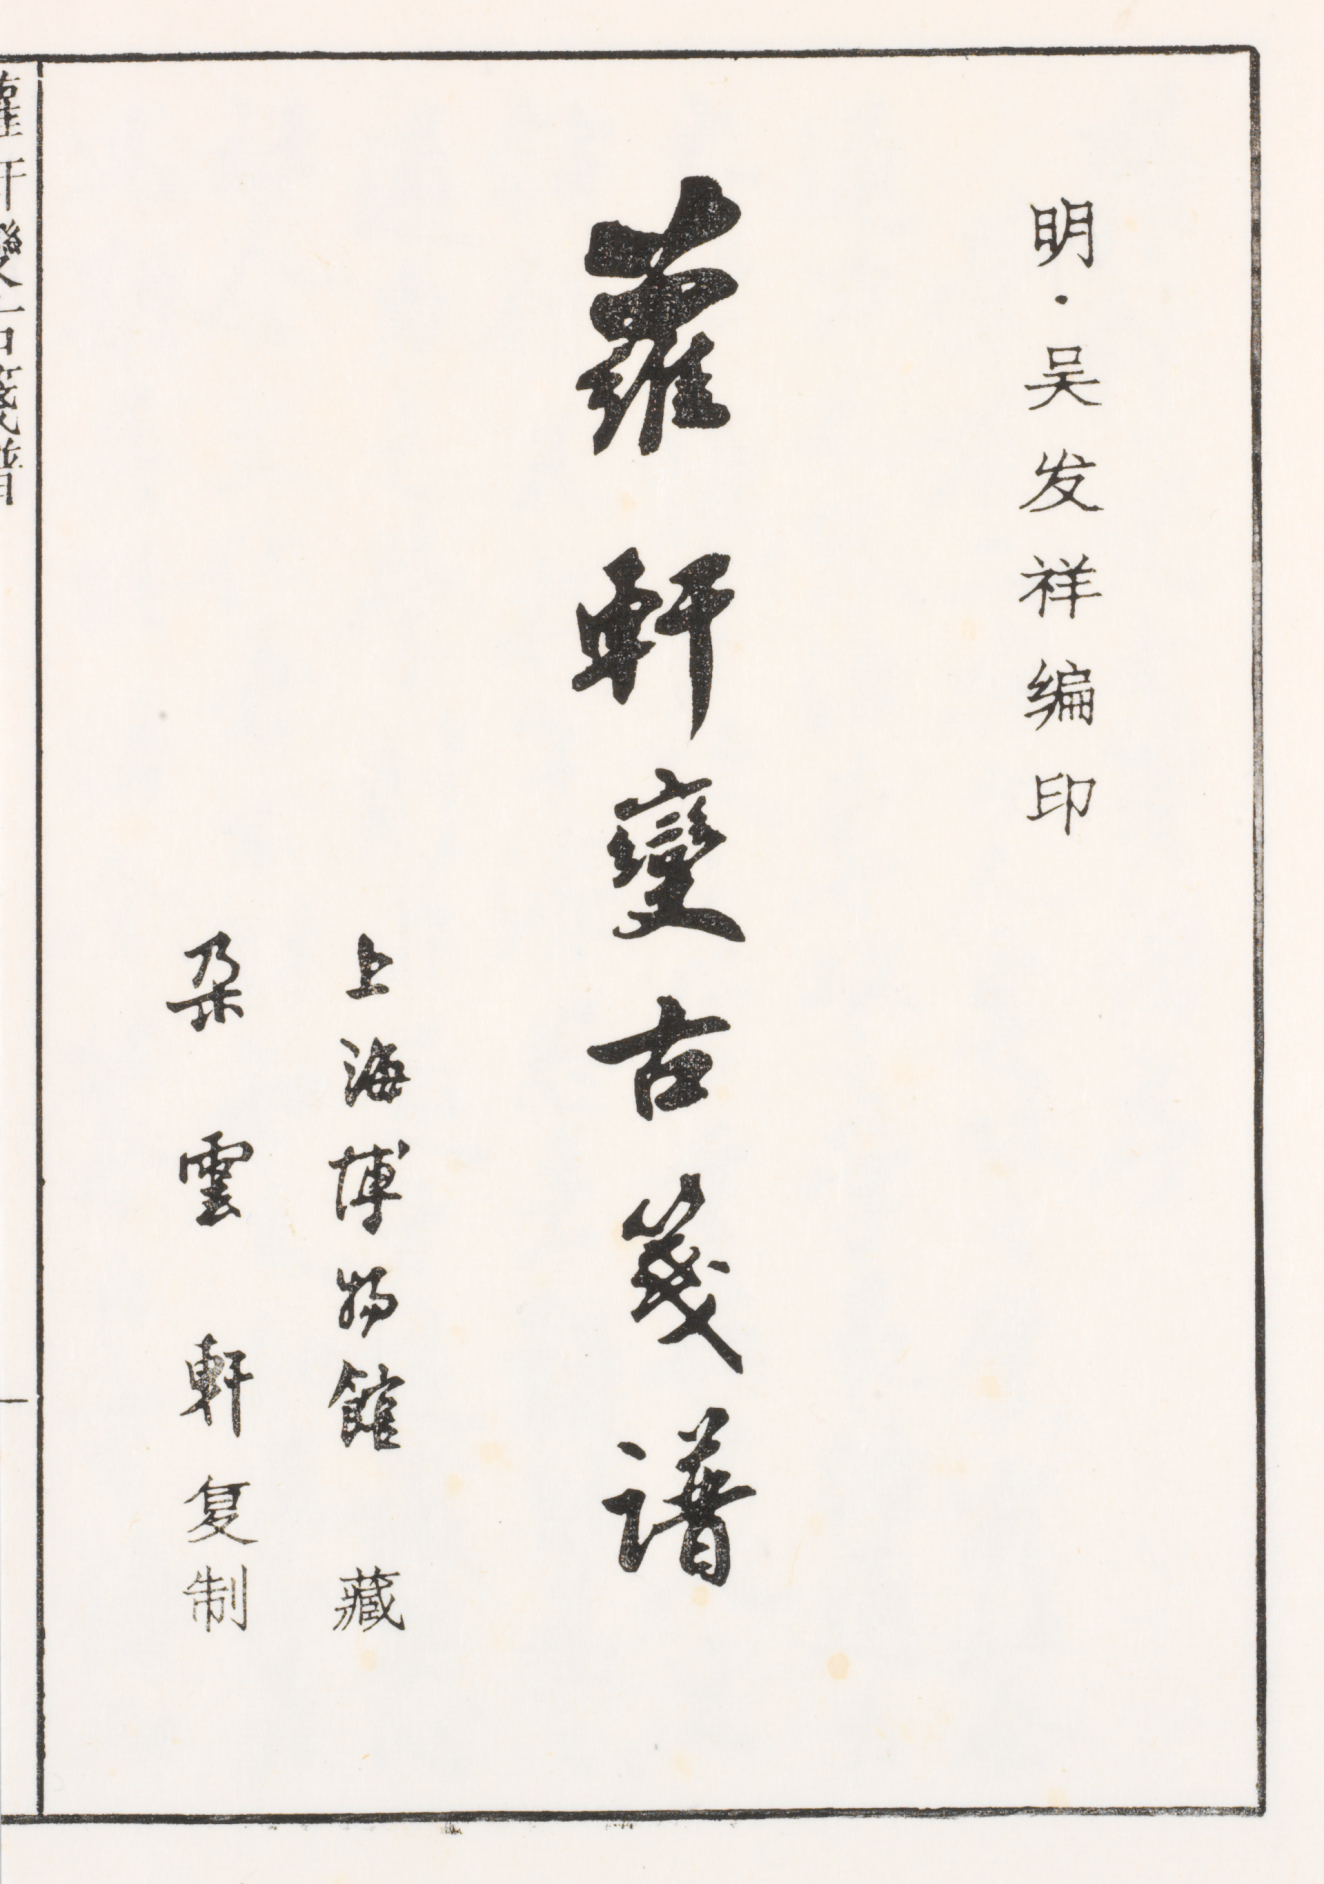 明·吴发祥编印
蘿軒變古箋譜
上海博物館 藏
朵雲軒复制
蘿軒變古箋譜
一